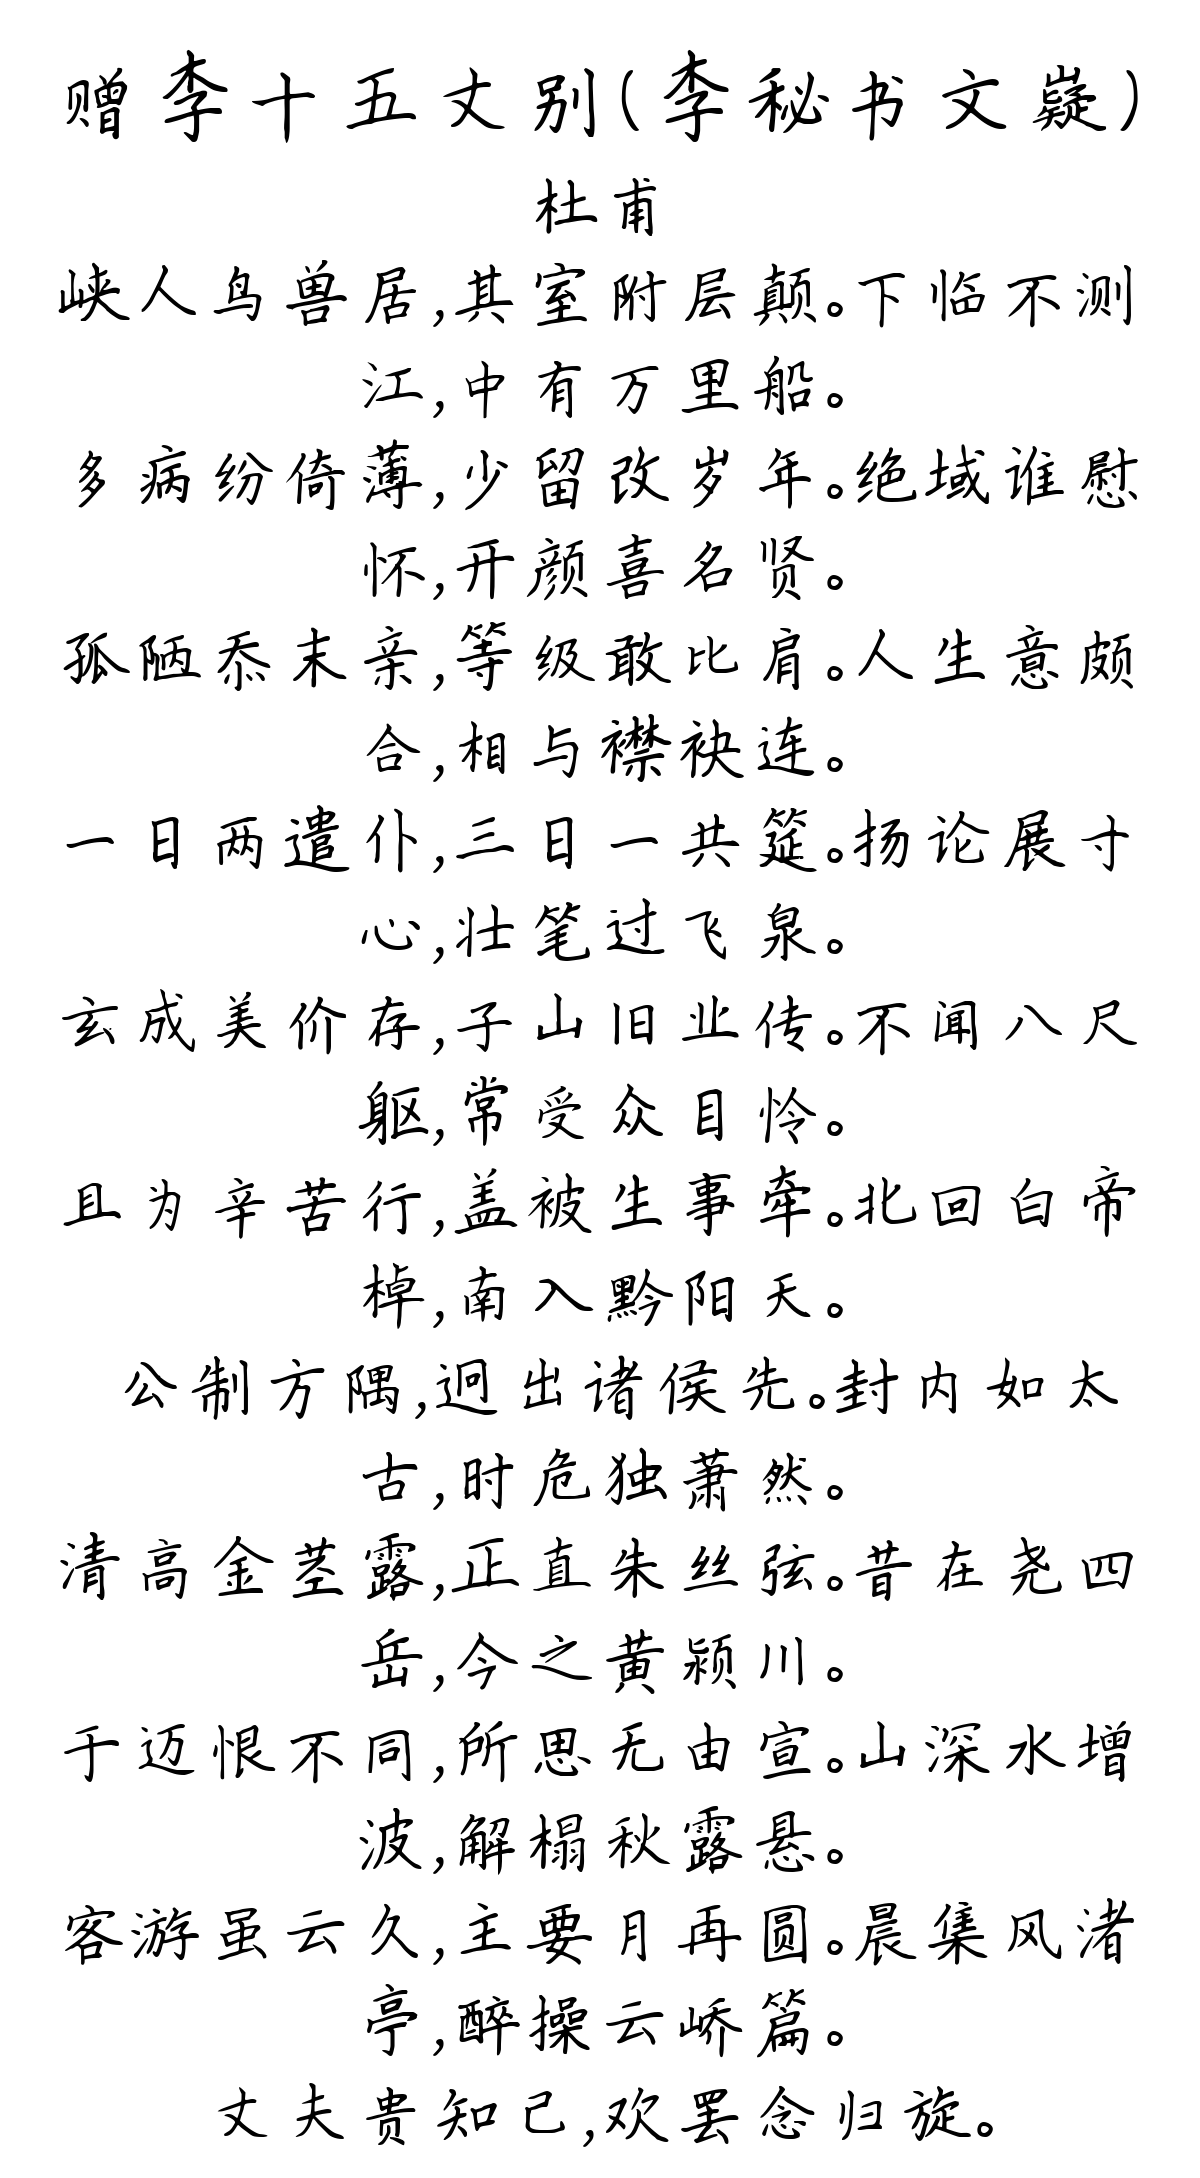 赠李十五丈别(李秘书文嶷)
杜甫
峡人鸟兽居,其室附层颠。下临不测
江,中有万里船。
多病纷倚薄,少留改岁年。绝域谁慰
怀,开颜喜名贤。
孤陋忝末亲,等级敢比肩。人生意颇
合,相与襟袂连。
一日两遣仆,三日一共筵。扬论展寸
心,壮笔过飞泉。
玄成美价存,子山旧业传。不闻八尺
躯,常受众目怜。
且为辛苦行,盖被生事牵。北回白帝
棹,南入黔阳天。
公制方隅,迥出诸侯先。封内如太
古,时危独萧然。
清高金茎露,正直朱丝弦。昔在尧四
岳,今之黄颍川。
于迈恨不同,所思无由宣。山深水增
波,解榻秋露悬。
客游虽云久,主要月再圆。晨集风渚
亭,醉操云峤篇。
丈夫贵知己,欢罢念归旋。